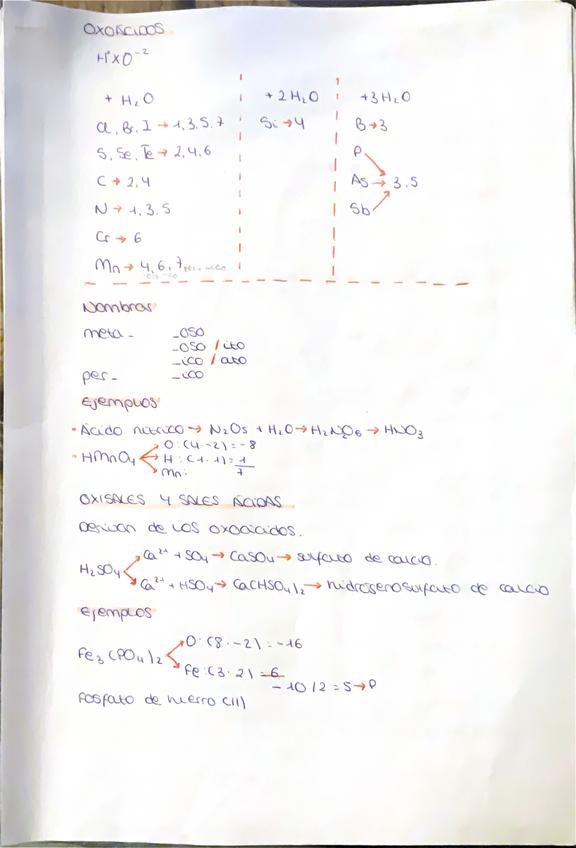 OXOÁCIDOS
H⁺XO⁻²
+ H₂O
Cl, Br, I → 1, 3, 5, 7
S, Se, Te → 2, 4, 6
C → 2, 4
N → 1, 3, 5
Cr → 6
Mn → 4, 6, 7 per...ico
+ 2H₂O
Si → 4
+3H₂O
B → 3
P
As → 3, 5
Sb
Nombras
meta - _oso
_oso / ito
_ico / ato
per - _ico
Ejemplos
· Ácido nítrico → N₂O₅ + H₂O → H₂N₂O₆ → HNO₃
O: (4·-2) = -8
· HMnO₄ H: (1·1) = 1
Mn: 7
OXISALES Y SALES ÁCIDAS
Derivan de los oxoácidos.
Ca²⁺ + SO₄ → CaSO₄ → sulfato de calcio.
H₂SO₄
Ca²⁺ + HSO₄ → Ca(HSO₄)₂ → hidrogenosulfato de calcio
Ejemplos
O: (8·-2) = -16
Fe₃(PO₄)₂
Fe: (3·2) = 6
-10/2 = 5 → P
Fosfato de hierro (II)